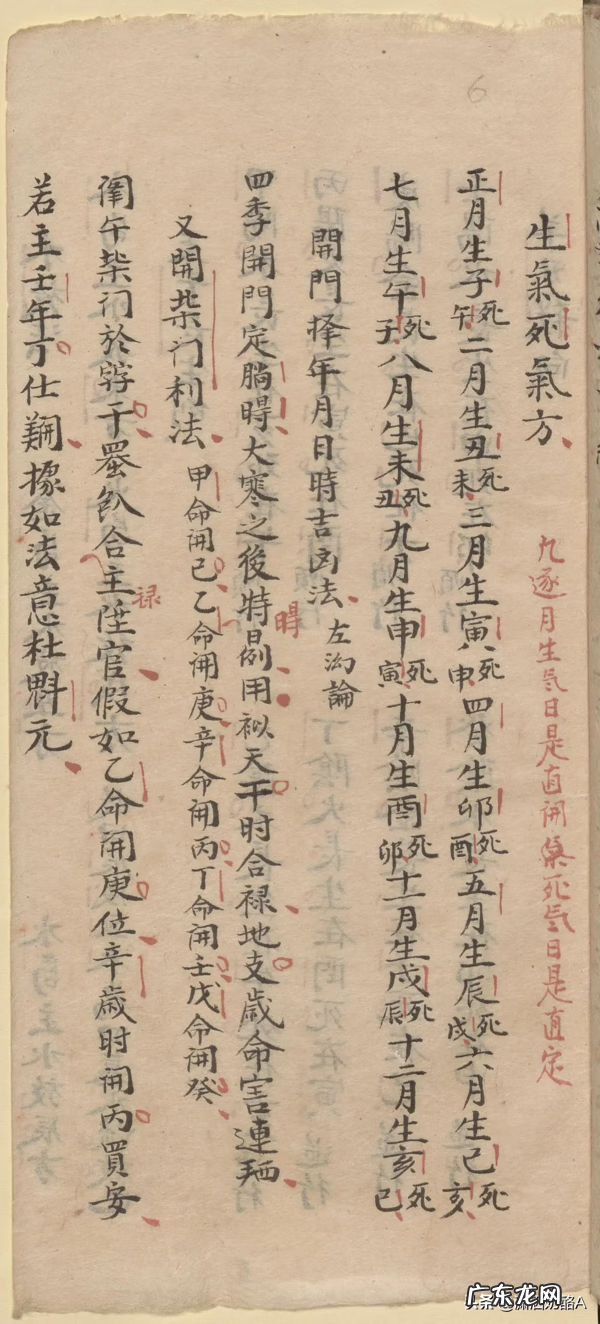 6
生氣死氣方
九逐月生炁日是直開 死炁日是直定
正月生子死午 二月生丑死未 三月生寅死申 四月生卯死酉 五月生辰死戌 六月生巳死亥
七月生午死子 八月生未死丑 九月生申死寅 十月生酉死卯 十一月生戌死辰 十二月生亥死巳
開門择年月日時吉凶法 左 論
四季開門定 大寒之後特 用 天干时合禄地支歲命害連
時
又開柴门利法 甲命開己乙命開庚辛命開丙丁命開壬戊命開癸
午柴门於 干 合主陞官假如乙命開庚位辛歲时開丙買安
禄
若主壬年丁仕 據如法意杜 元
广东龙网
头条 @ 奶酪A